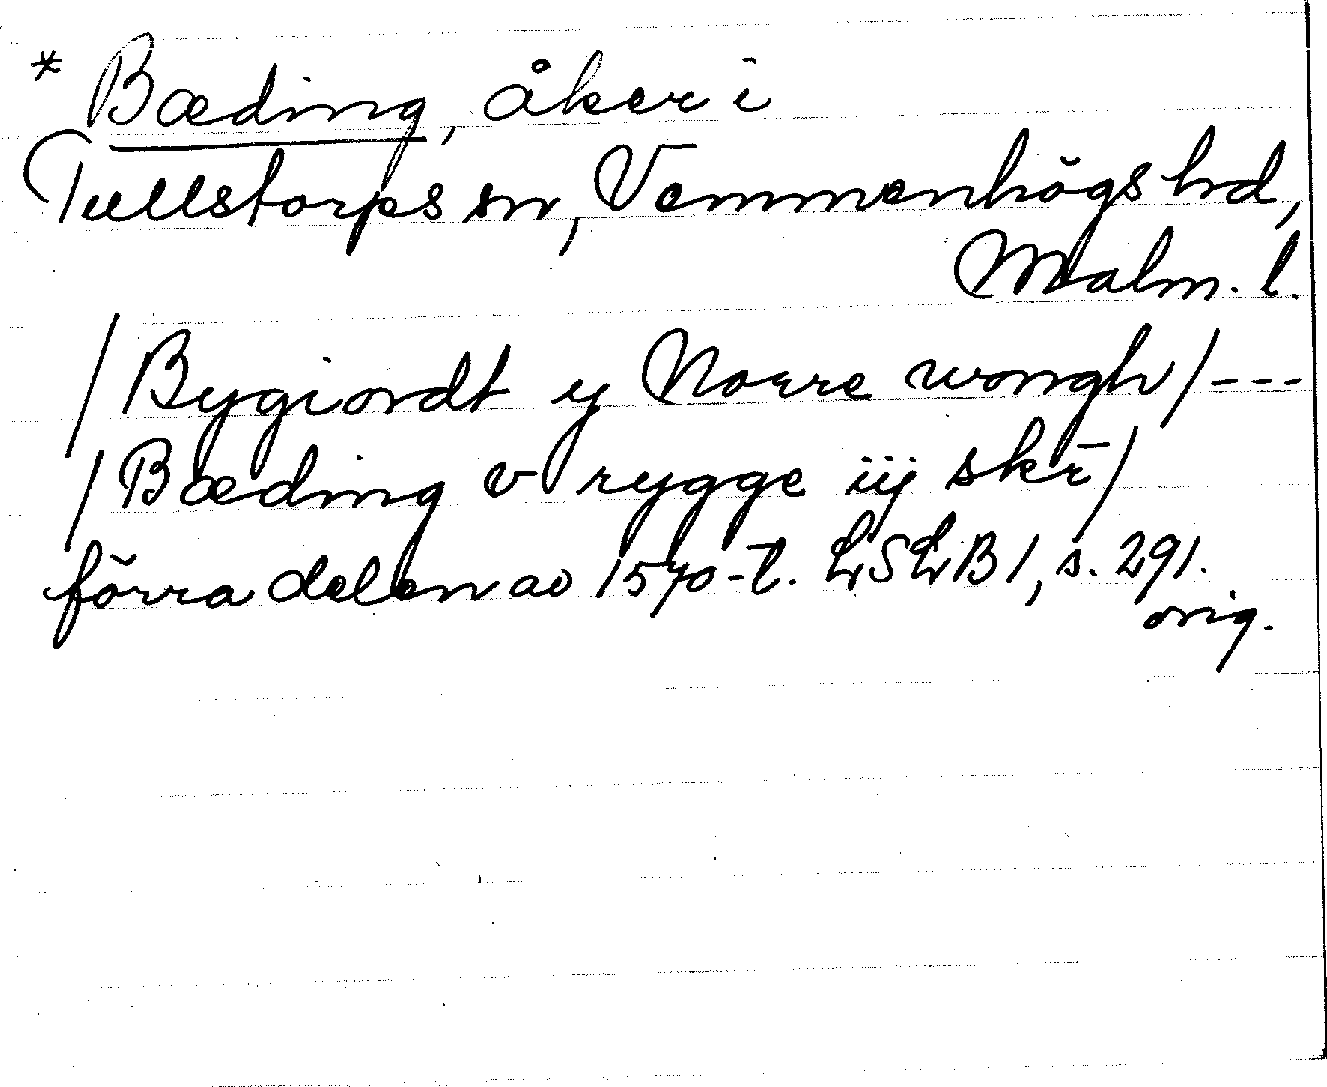 * Bæding, åker i
Tullstorps sn, Vemmenhögs hd,
Malm. l.
/Bygiordt y Norre wongh/---
/Bæding v rygge iij skr̄/
förra delen av 1570-t. LSLB1, s. 291.
orig.